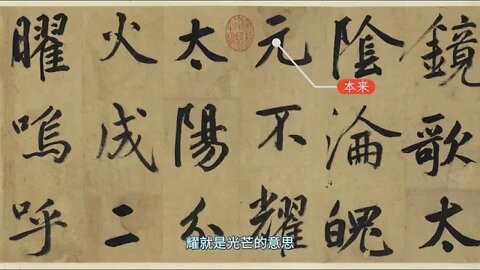 鏡歌太
陰淪魄
元不耀
太陽分
火成二
曜嗚呼
本来
耀就是光芒的意思